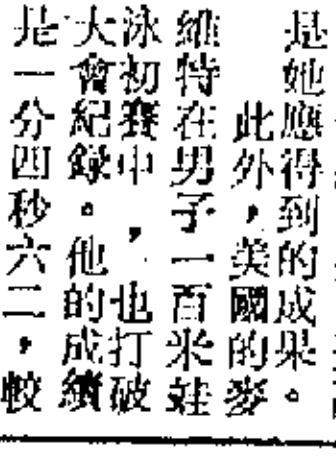 是她應得到的成果。
此外，美國的麥
維特在男子一百米蛙
泳初賽中，也打破
大會紀錄。他的成績
是一分四秒六二，較